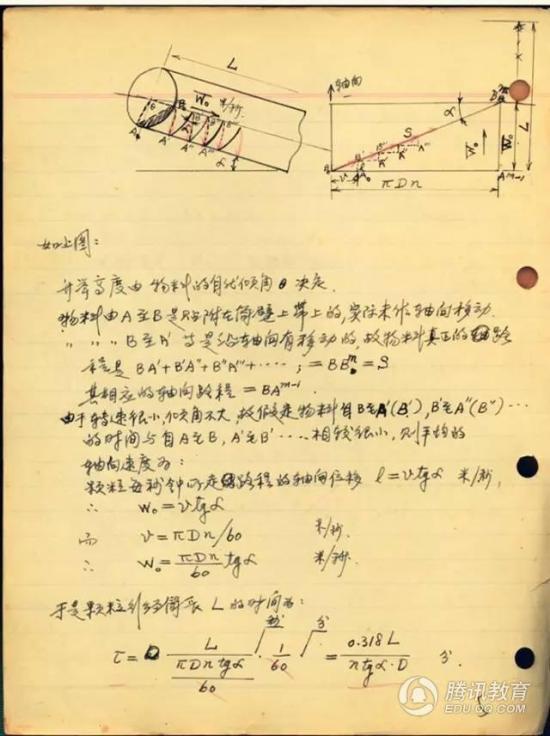 L
W₀ 米/秒
θ
A B
A' A'' A'''
α
轴向
S
α
B
W₀
L
A v A₀
πDn
A^{m-1}
如上图:
升举高度由物料的自然倾角θ决定.
物料由A至B是只附在筒壁上带上的,实际未作轴向移动.
〃 〃 〃 B至A' 才是沿轴向有移动的,故物料真正的路
程是 BA'+B'A''+B''A'''+·····; = BB₀^m = S
其相应的轴向路程 = BA^{m-1}.
由于转速很小,倾角不大,故假定物料自B至A'(B'),B'至A''(B'')···
的时间与自A至B,A'至B'····相较很小,则平均的
轴向速度为:
颗粒每秒钟所走路程的轴向位移 l = v tgα 米/秒,
∴ W₀ = v tgα
而 v = πDn/60 米/秒.
∴ W₀ = πDn/60 tgα 米/秒.
于是颗粒经筒长 L 的时间为:
τ = L / (πDn tgα / 60) · 1/60 = 0.318L / (n tgα·D) 分.
秒 分
5
腾讯教育
EDU.QQ.COM